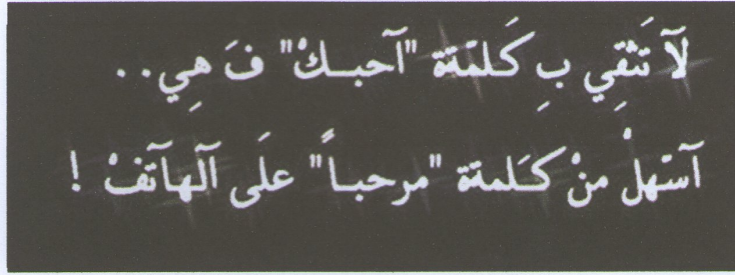 لآ تَثقِي بِ كَلمّةة "آحبــكْ" فَ هِي..
آسّهلْ منْ كَـَلمةة "مرحبــاً" علَى آلهآتَفْ !